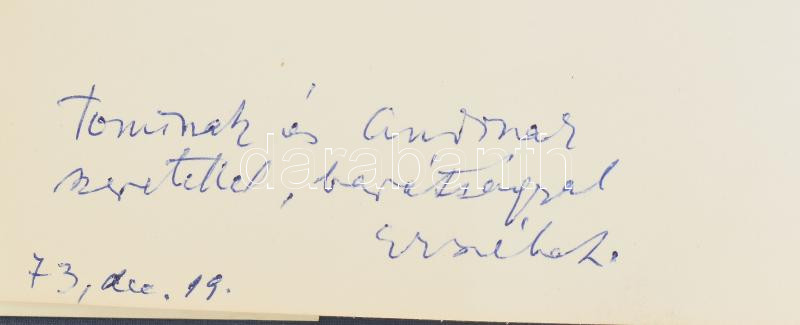 Tominak és Andinak
szeretettel, barátsággal
Erzsébet.
73, dec. 19.
darabanth